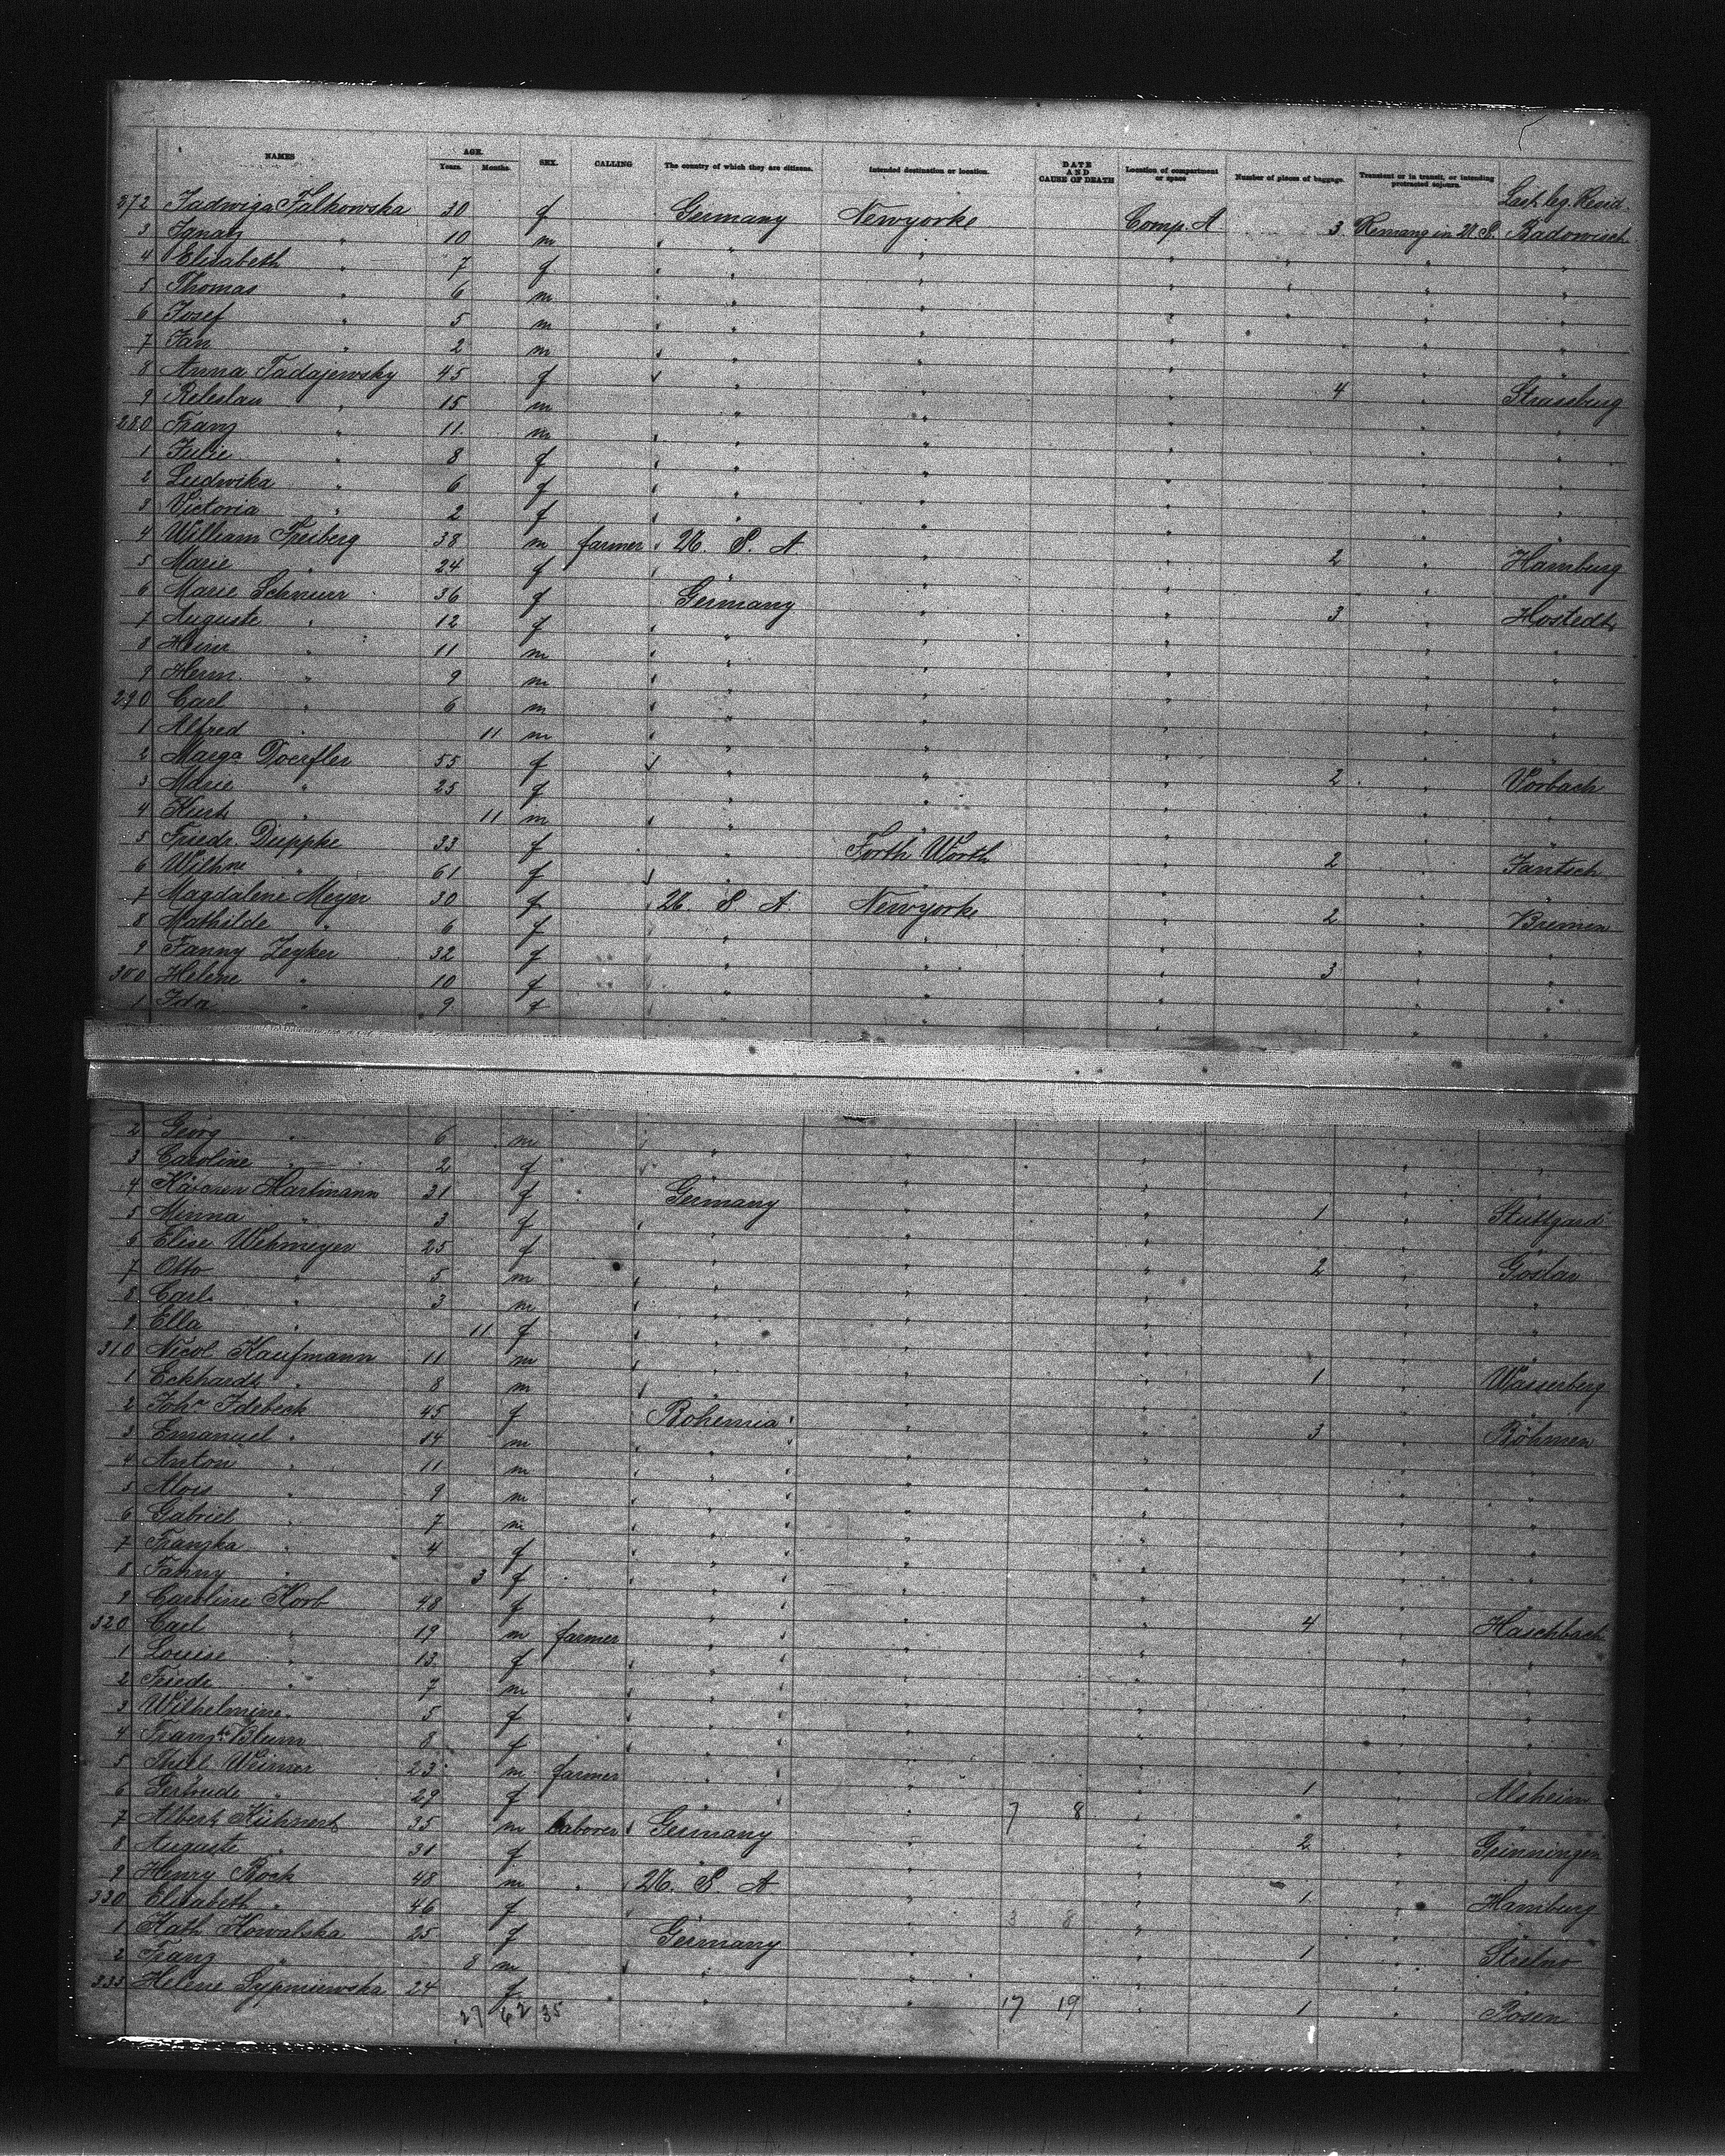 NAMES AGE. Years. Months. SEX. CALLING The country of which they are citizens. Intended destination or location. DATE AND CAUSE OF DEATH Location of compartment or space Number of pieces of baggage. Transient or in transit, or intending protracted sojourn. Last leg. Resid.
272 Jadwiga Falkowska 30 f Germany Newyorke Comp. A 3 Remang in U. S. Badowisch
3 Ignatz " 10 m " " " " " "
4 Elisabeth " 7 f " " " " " "
5 Thomas " 6 m " " " " " "
6 Josef " 5 m " " " " " "
7 Jan " 2 m " " " " "
8 Anna Tadajewsky 45 f " " " 4 " Strassburg
9 " 15 m " " " " "
280 Franz " 11 m " " " " "
1 Julie " 8 f " " " " "
2 Ludwika " 6 f " " " " "
3 Victoria " 2 f " " " " "
4 William Freiberg 38 m farmer U. S. A " " 2 " Hamburg
5 Marie " 24 f " " " " "
6 Marie Schnurr 36 f Germany " " 3 " Hostedt
7 Auguste " 12 f " " " " "
8 Heinr " 11 m " " " " "
9 Herm. " 9 m " " " " "
290 Carl " 6 m " " " " "
1 Alfred " 11 m " " " " "
2 Marga Doerfler 55 f " " " 2 " Vorbach
3 Marie " 25 f " " " " "
4 Kurt " 11 m " " " " "
5 Friedr Duppke 33 f " Forth Worth " 2 " Jantsch
6 Wilhne " 61 f " " " " "
7 Magdalene Meyer 30 f U. S A Newyorke " 2 " Bremen
8 Mathilde " 6 f " " " " "
9 Fanny Zeyker 32 f " " " 3 " "
300 Helene " 10 f " " " " "
1 Ida " 9 f " " " " "
2 Georg " 6 m " " " " "
3 Caroline " 2 f " " " " "
4 Hartmann 31 f Germany " " 1 " Stuttgard
5 Minna " 3 f " " " " "
6 Elise Wehmeyer 25 f " " " 2 " Goslar
7 Otto " 5 m " " " " "
8 Carl " 3 m " " " " "
9 Ella " 11 f " " " " "
310 Nicol Kaufmann 11 m " " " 1 " Wasserberg
1 Eckhardt " 8 m " " " " "
2 Joha Idebeck 45 f Bohemia " " 3 " Böhmen
3 Emanuel " 14 m " " " " "
4 Anton " 11 m " " " " "
5 Alois " 9 m " " " " "
6 Gabriel " 7 m " " " " "
7 Franzka " 4 f " " " " "
8 Fanny " 3 f " " " " "
9 Caroline Korb 48 f " " " 4 " Haschbach
320 Carl " 19 m farmer " " " " "
1 Louise " 13 f " " " " "
2 Friedr " 7 m " " " " "
3 Wilhelmine " 5 f " " " " "
4 Blum 8 f " " " " "
5 Weimer 23 m farmer " " " 1 " Alsheim
6 Gertrude " 29 f " " 7 8 " " "
7 Albert Kühnert 35 m Laborer Germany " " 2 " Grinningen
8 Auguste " 31 f " " " " "
9 Henry Bock 48 m " U. S. A " " 1 " Hamburg
330 Elisabeth " 46 f " " 3 8 " " "
1 Kath Kowalska 25 f Germany " " 1 " Strelno
2 Franz " 8 m " " " " "
333 Helene Sypniewska 24 f " " 17 19 " 1 " Posen
27 62 35